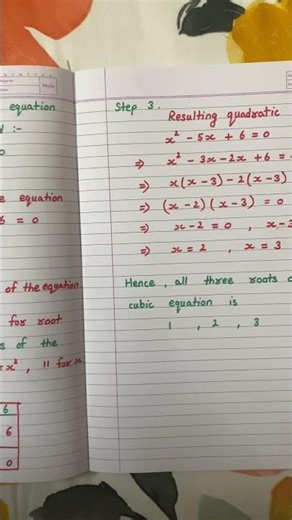 equation
:-
equation
= 0
of the equation.
for root
of the
x², || for x
6
6
0
Step 3.
Resulting quadratic
x² - 5x + 6 = 0
⇒ x² - 3x - 2x + 6 =
⇒ x(x - 3) - 2(x - 3)
⇒ (x - 2) (x - 3) = 0
⇒ x - 2 = 0 , x - 3
⇒ x = 2 , x = 3
Hence, all three roots
cubic equation is
1 , 2 , 3